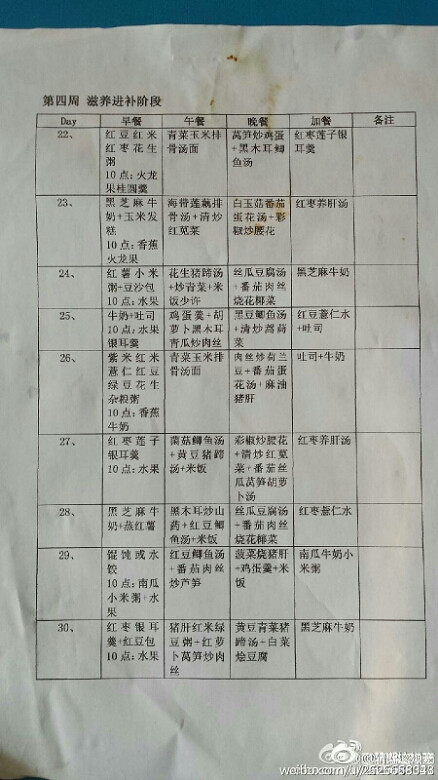 第四周 滋养进补阶段
Day 早餐 午餐 晚餐 加餐 备注
22、 红豆红米 青菜玉米排 莴笋炒鸡蛋 红枣莲子银
红枣花生 骨汤面 +黑木耳鲫 耳羹
粥 鱼汤
10点：火龙
果桂圆羹
23、 黑芝麻牛 海带莲藕排 白玉菇番茄 红枣养肝汤
奶+玉米发 骨汤+清炒 蛋花汤+彩
糕 红苋菜 椒炒腰花
10点：香蕉
火龙果
24、 红薯小米 花生猪蹄汤 丝瓜豆腐汤 黑芝麻牛奶
粥+豆沙包 +炒青菜+米 +番茄肉丝
10点：水果 饭少许 烧花椰菜
25、 牛奶+吐司 鸡蛋羹+胡 黑豆鲫鱼汤 红豆薏仁水
10点：水果 萝卜黑木耳 +清炒茼蒿 +吐司
银耳羹 青瓜炒肉丝 菜
26、 紫米红米 青菜玉米排 肉丝炒荷兰 吐司+牛奶
薏仁红豆 骨汤面 豆+番茄蛋
绿豆花生 花汤+麻油
杂粮粥 猪肝
10点：香蕉
牛奶
27、 红枣莲子 菌菇鲫鱼汤 彩椒炒腰花 红枣养肝汤
银耳羹 +黄豆猪蹄 +清炒红苋
10点：水果 汤+米饭 菜+番茄丝
瓜莴笋胡萝
卜汤
28、 黑芝麻牛 黑木耳炒山 丝瓜豆腐汤 红枣薏仁水
奶+蒸红薯 药+红豆鲫 +番茄肉丝
鱼汤+米饭 烧花椰菜
29、 馄饨或水 红豆鲫鱼汤 菠菜烧猪肝 南瓜牛奶小
饺 +番茄肉丝 +鸡蛋羹+米 米粥
10点：南瓜 炒芦笋 饭
小米粥+水
果
30、 红枣银耳 猪肝红米绿 黄豆青菜猪 黑芝麻牛奶
羹+红豆包 豆粥+红萝 蹄汤+白菜
10点：水果 卜莴笋炒肉 烩豆腐
丝